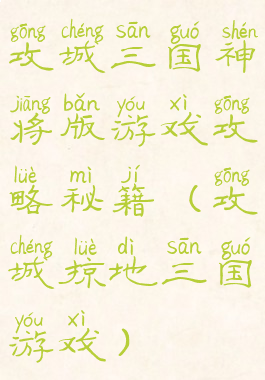 gōng chéng sān guó shén
攻城三国神
jiāng bǎn yóu xì gōng
将版游戏攻
lüè mì jí gōng
略秘籍（攻
chéng lüè dì sān guó
城掠地三国
yóu xì
游戏）